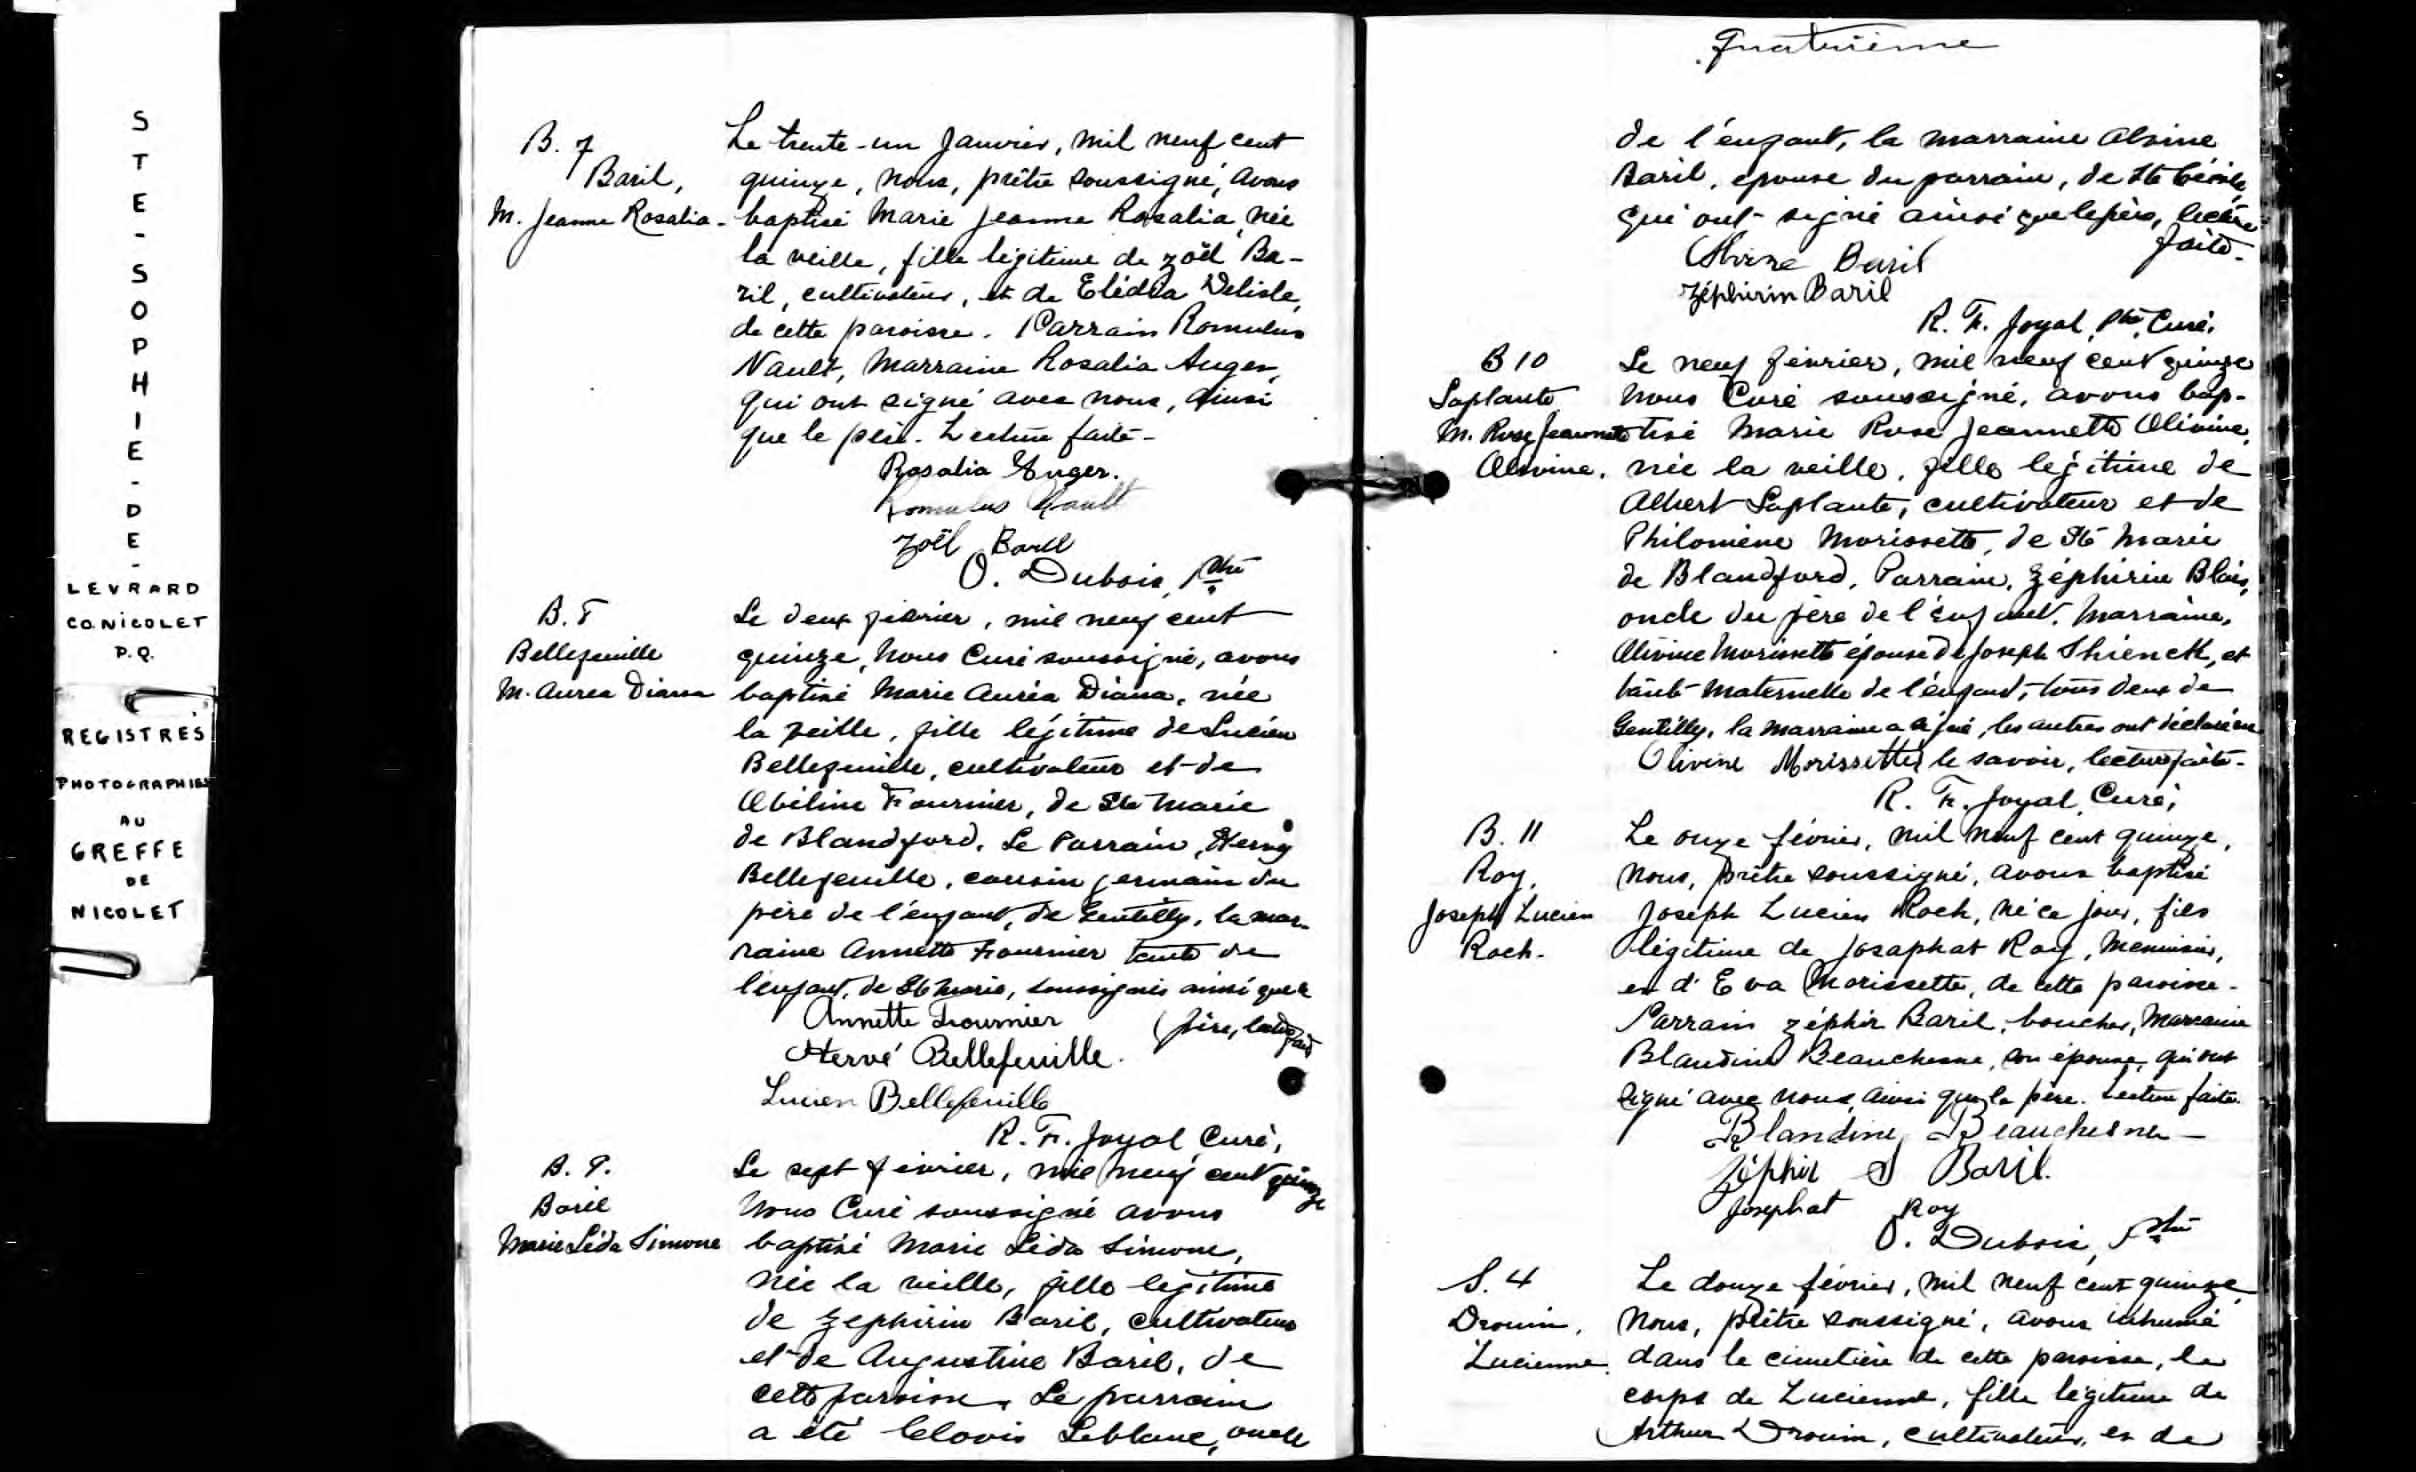 STE-SOPHIE-DE-
LEVRARD
CO. NICOLET
P.Q.
REGISTRES
PHOTOGRAPHIES
AU
GREFFE
DE
NICOLET
B. 7
Baril,
M. Jeanne Rosalia.
Le trente-un Janvier, mil neuf cent
quinze, nous, prêtre soussigné, avons
baptisé Marie Jeanne Rosalia, née
la veille, fille légitime de Zoël Ba-
ril, cultivateur, et de Elédia Delisle,
de cette paroisse. Parrain Romulus
Nault, Marraine Rosalia Auger,
qui ont signé avec nous, ainsi
que le père. Lecture faite-
Rosalia Auger.
Romulus Nault
Zoël Baril
O. Dubois, Ptre
B. 8
Bellefeuille
M. Aurea Diana
Le deux février, mil neuf cent
quinze, Nous Curé soussigné, avons
baptisé Marie Auréa Diana, née
la veille, fille légitime de Lucien
Bellefeuille, cultivateur et de
Abéline Fournier, de Ste Marie
de Blandford. Le Parrain, Hervé
Bellefeuille, cousin germain du
père de l'enfant, de Gentilly, la mar-
raine Annette Fournier tante de
l'enfant, de Ste Marie, soussignés ainsi que le
Annette Fournier (père, lecture faite
Hervé Bellefeuille.
Lucien Bellefeuille
R. F. Joyal, Curé,
B. 9.
Baril
Marie Léda Simone
Le sept février, mil neuf cent quinze
Nous Curé soussigné avons
baptisé Marie Léda Simone,
née la veille, fille légitime
de Zephirin Baril, cultivateur
et de Augustine Baril, de
cette paroisse. Le parrain
a été Clovis Leblanc, oncle
Quatrième
de l'enfant, la marraine Alvine
Baril, épouse du parrain, de Ste Cécile,
qui ont signé ainsi que le père, lecture
faite.
Alvine Baril
Zéphirin Baril
R. F. Joyal, Ptre, Curé,
B 10
Laplante
M. Rose Jeannette
Olivine.
Le neuf février, mil neuf cent quinze
Nous Curé soussigné, avons bap-
tisé Marie Rose Jeannette Olivine,
née la veille, fille légitime de
Albert Laplante, cultivateur et de
Philomène Morissette, de Ste Marie
de Blandford. Parrain, Zéphirin Blais,
oncle du père de l'enfant. Marraine,
Olivine Morissette épouse de Joseph et
tante maternelle de l'enfant, tous deux de
Gentilly, la marraine a signé, les autres ont déclaré ne
Olivine Morissette le savoir, lecture faite-
R. F. Joyal, Curé,
B. 11
Roy,
Joseph Lucien
Roch.
Le onze février, mil neuf cent quinze,
nous, prêtre soussigné, avons baptisé
Joseph Lucien Roch, né ce jour, fils
légitime de Josaphat Roy, menuisier,
et d'Eva Morissette, de cette paroisse-
Parrain Zéphir Baril, boucher, Marraine
Blandine Beauchesne, son épouse, qui ont
signé avec nous, ainsi que le père. Lecture faite.
Blandine Beauchesne
Zéphir S Baril.
Josephat Roy
O. Dubois, Ptre
S. 4
Drouin,
Lucienne.
Le douze février, mil neuf cent quinze,
Nous, prêtre soussigné, avons inhumé
dans le cimetière de cette paroisse, le
corps de Lucienne, fille légitime de
Arthur Drouin, cultivateur, et de